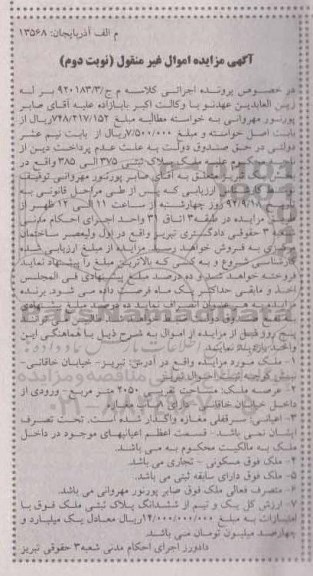 م الف آذربایجان: ۱۳۵۶۸
آگهی مزایده اموال غیر منقول (نوبت دوم)
در خصوص پرونده اجرائی کلاسه م ج/۹۲۰۱۸۳/۳ بر له
زین العابدین عهدنو با وکالت اکبر بابازاده علیه آقای صابر
پورنور مهروانی به خواسته مطالبه مبلغ ۷۴۸/۲۱۷/۱۵۲ریال از
بابت اصل خواسته و مبلغ ۷/۵۰۰/۰۰۰ریال از بابت نیم عشر
دولتی در حق صندوق دولت به علت عدم پرداخت دین از
علیه ملک پلاک ثبتی ۳۷۵ الی ۳۸۵ واقع در
متعلق به آقای صابر پورنور مهروانی توقیف
ارزیابی که پس از طی مراحل قانونی به
۹۲/۹/۱۸ روز چهارشنبه از ساعت ۱۱ الی ۱۲ ظهر از
مزایده در طبقه۳ اتاق ۳۱ واحد اجرای احکام مدنی
شعبه ۳ حقوقی دادگستری تبریز واقع در اول ولیعصر ساختمان
به فروش خواهد رسید. مزایده از مبلغ ارزیابی شده
کارشناسی شروع و به کسی که بالاترین مبلغ را پیشنهاد نماید
فروخته خواهد شد و ده درصد مبلغ پیشنهادی فی المجلس
اخذ و مابقی حداکثر یک ماه فرصت داده می شود. برنده
پنج روز قبل از مزایده از اموال به شرح ذیل با هماهنگی این
واحد بازدید نمایند.
۱- ملک مورد مزایده واقع در آدرس: تبریز- خیابان خاقانی-
۲- عرصه ملک: مساحت تقریبی ۲۰۵۰ متر مربع- ورودی از
داخل خیابان خاقانی- دارای باب مغازه
۳- اعیانی: سرقفلی مغازه واگذار شده است. تحت تصرف
ایشان نمی باشد- قسمت اعظم اعیانیهای موجود در داخل
ملک به مالکیت محکوم به می باشد.
۴- ملک فوق مسکونی - تجاری می باشد.
۵- ملک فوق دارای سابقه ثبتی می باشد.
۶- متصرف فعالی ملک فوق صابر پورنور مهروانی می باشد.
۷- ارزش کل یک و نیم از ششدانگ پلاک ثبتی ملک فوق با
امتیازات به مبلغ ۱۴/۰۰۰/۰۰۰/۰۰۰ریال معادل یک میلیارد و
چهارصد میلیون تومان می باشد.
دادورز اجرای احکام مدنی شعبه۳ حقوقی تبریز